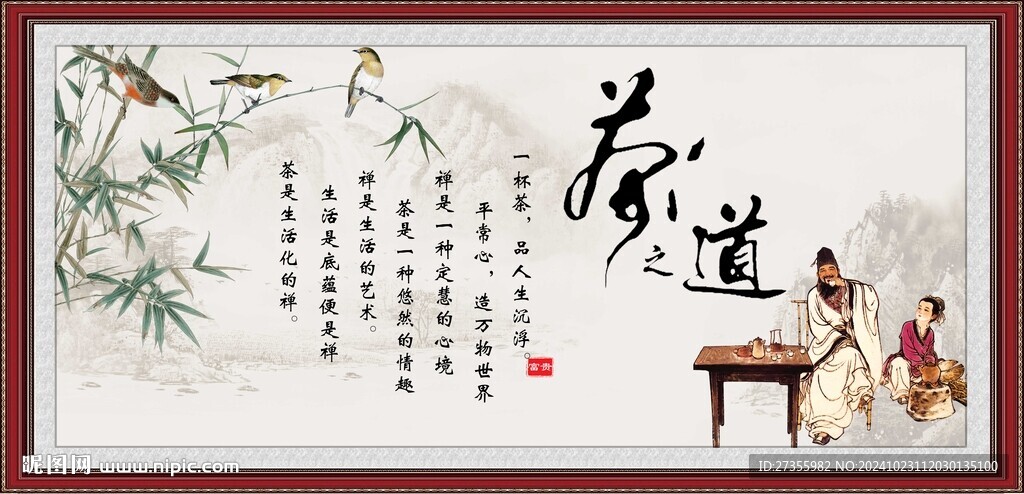 茶之道
一杯茶，品人生沉浮。
平常心，造万物世界
禅是一种定慧的心境
茶是一种悠然的情趣
禅是生活的艺术。
生活是底蕴便是禅
茶是生活化的禅。
富贵
昵图网 www.nipic.com
ID:27355982 NO:20241023112030135100